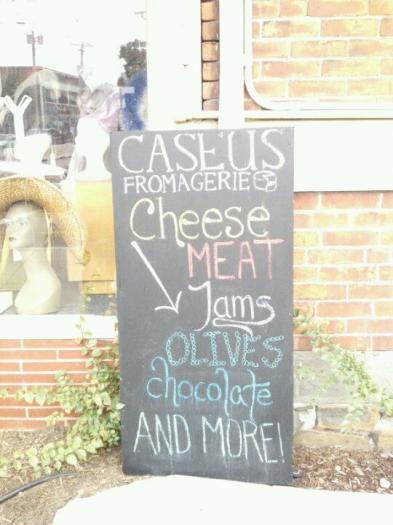 CASEUS
FROMAGERIE
Cheese
MEAT
Jams
OLIVES
chocolate
AND MORE!